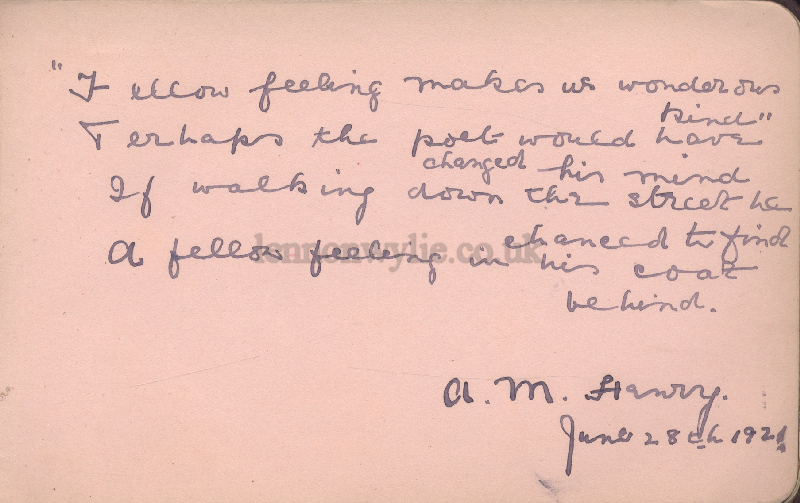 "Fellow feeling makes us wonderous
kind"
Perhaps the poet would have
changed his mind
If walking down the street he
chanced to find
A fellow feeling in his coat
behind.
lennonwylie.co.uk
A. M. Henry.
June 28th 1921